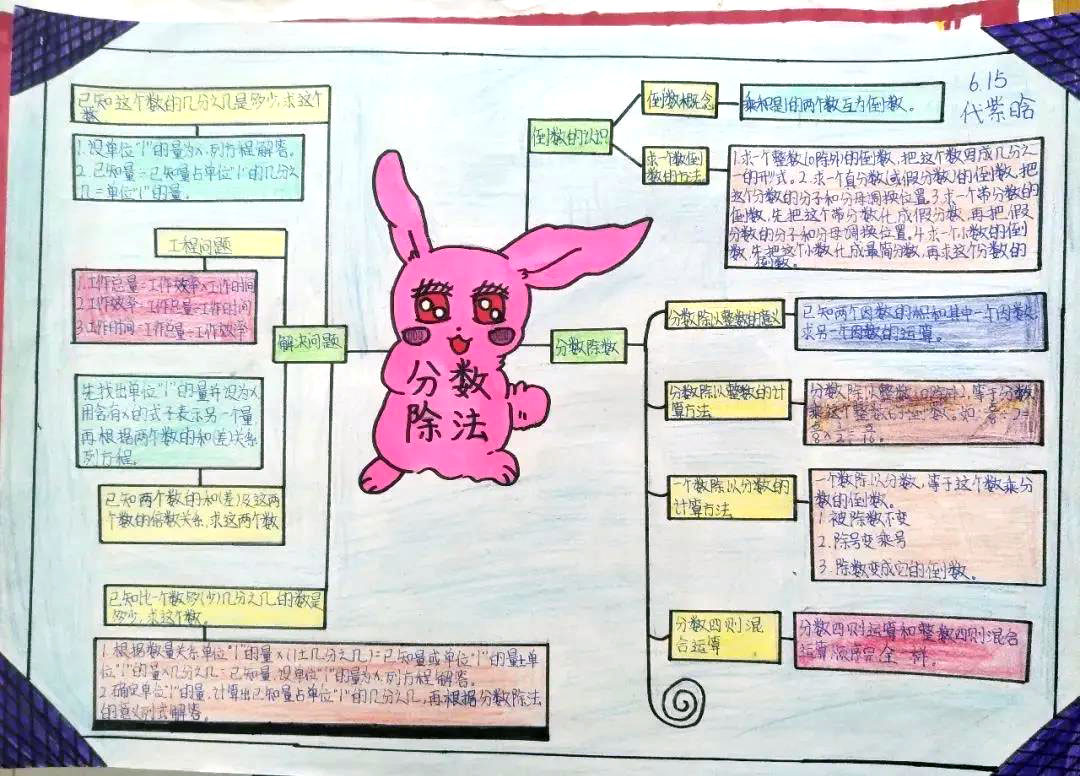 已知这个数的几分之几是多少,求这个
数
1.设单位"1"的量为x,列方程解答。
2.已知量÷已知量占单位"1"的几分之
几=单位"1"的量。
工程问题
1.工作总量=工作效率×工作时间
2.工作效率=工作总量÷工作时间
3.工作时间=工作总量÷工作效率
解决问题
先找出单位"1"的量并设为x,
用含有x的式子表示另一个量,
再根据两个数的和(差)关系
列方程。
已知两个数的和(差)及这两
个数的倍数关系,求这两个数
已知比一个数多(少)几分之几的数是
多少,求这个数。
1.根据数量关系单位"1"的量×(1±几分之几)=已知量或单位"1"的量±单
位"1"的量×几分之几=已知量,设单位"1"的量为x,列方程解答。
2.确定单位"1"的量,计算出已知量占单位"1"的几分之几,再根据分数除法
的意义列式解答。
分数
除法
6.15
代紫晗
倒数的认识
倒数概念
乘积是1的两个数互为倒数。
求一个数倒
数的方法。
1.求一个整数(0除外)的倒数,把这个数写成几分之
一的形式。2.求一个真分数(或假分数)的倒数,把
这个分数的分子和分母调换位置。3.求一个带分数的
倒数,先把这个带分数化成假分数,再把假
分数的分子和分母调换位置。4.求一个小数的倒
数,先把这个小数化成最简分数,再求这个分数的
倒数。
分数除数
分数除以整数的意义
已知两个因数的积和其中一个因数,
求另一个因数的运算。
分数除以整数的计
算方法
分数除以整数(0除外),等于分数
乘这个整数的倒数。如:
一个数除以分数的
计算方法
一个数除以分数,等于这个数乘分
数的倒数。
1.被除数不变
2.除号变乘号
3.除数变成它的倒数。
分数四则混
合运算
分数四则运算和整数四则混合
运算顺序完全一样。